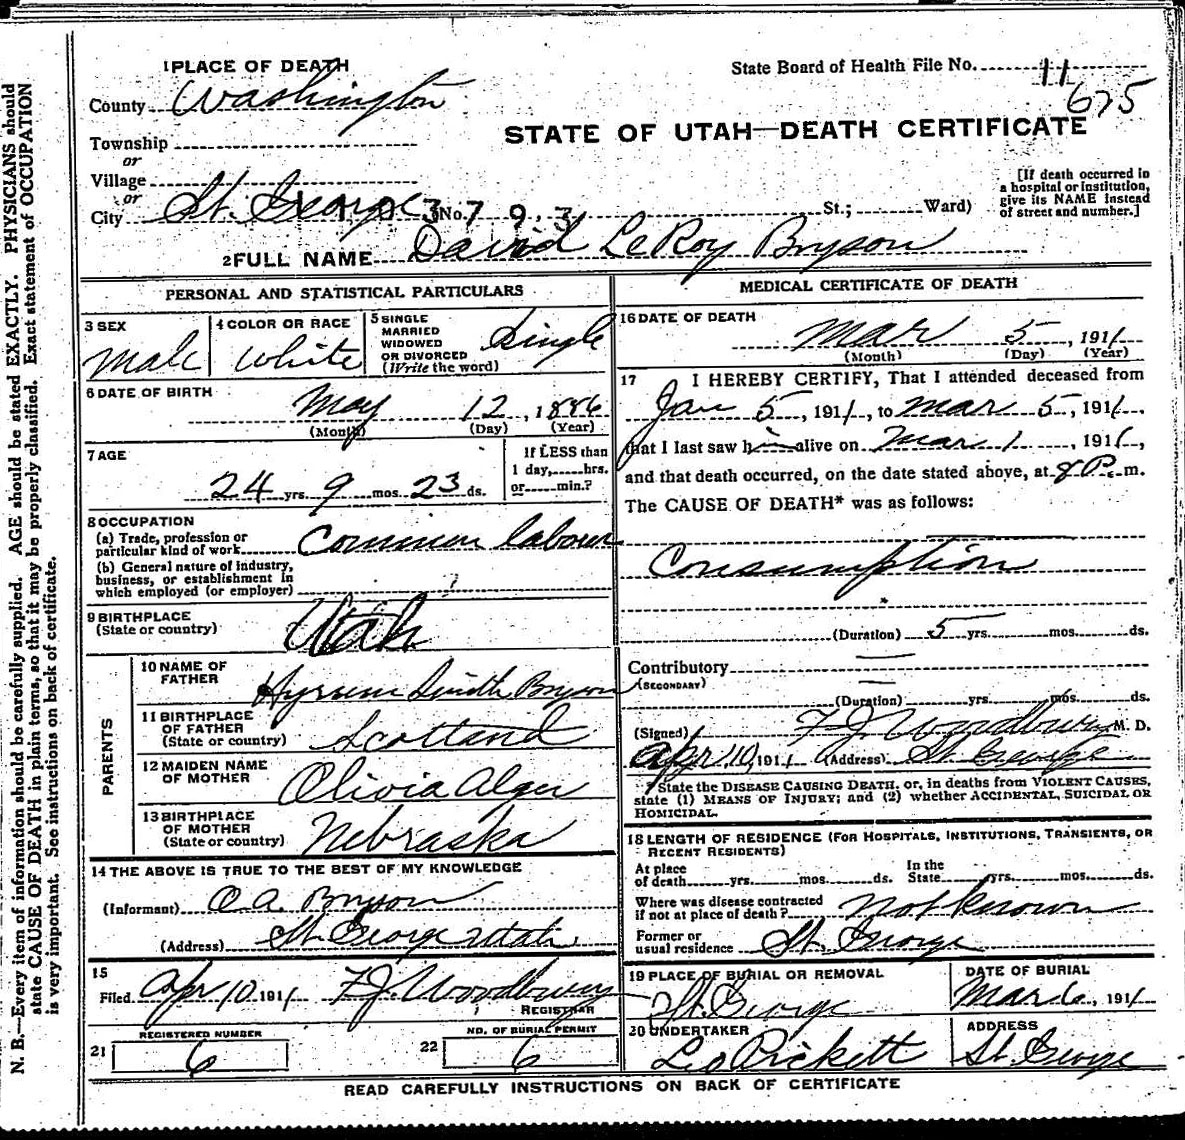 N. B.—Every item of information should be carefully supplied. AGE should be stated EXACTLY. PHYSICIANS should
state CAUSE OF DEATH in plain terms, so that it may be properly classified. Exact statement of OCCUPATION
is very important. See instructions on back of certificate.
1 PLACE OF DEATH
State Board of Health File No. 11
675
County Washington
STATE OF UTAH—DEATH CERTIFICATE
Township
or
Village
or
City St. George No. St.; Ward)
3793
[If death occurred in
a hospital or institution,
give its NAME instead
of street and number.]
2 FULL NAME David LeRoy Bryson
PERSONAL AND STATISTICAL PARTICULARS
3 SEX
Male
4 COLOR OR RACE
White
5 SINGLE
MARRIED
WIDOWED
OR DIVORCED
(Write the word)
Single
6 DATE OF BIRTH
May 12, 1886
(Month) (Day) (Year)
7 AGE
24 yrs. 9 mos. 23 ds.
If LESS than
1 day, hrs.
or min.?
8 OCCUPATION
(a) Trade, profession or
particular kind of work Common labour
(b) General nature of industry,
business, or establishment in
which employed (or employer)
9 BIRTHPLACE
(State or country) Utah
PARENTS
10 NAME OF
FATHER Hyrum Smith Bryson
11 BIRTHPLACE
OF FATHER
(State or country) Scotland
12 MAIDEN NAME
OF MOTHER Olivia Alger
13 BIRTHPLACE
OF MOTHER
(State or country) Nebraska
14 THE ABOVE IS TRUE TO THE BEST OF MY KNOWLEDGE
(Informant) O.A. Bryson
(Address) St. George Utah
15
Filed Apr 10 1911 F.J. Woodbury
REGISTRAR
REGISTERED NUMBER
21 6
NO. OF BURIAL PERMIT
22 6
MEDICAL CERTIFICATE OF DEATH
16 DATE OF DEATH
Mar 5, 1911
(Month) (Day) (Year)
17 I HEREBY CERTIFY, That I attended deceased from
Jan 5, 1911, to Mar 5, 1911,
that I last saw him alive on Mar 1, 1911,
and that death occurred, on the date stated above, at 8 P. m.
The CAUSE OF DEATH* was as follows:
Consumption
(Duration) 5 yrs. mos. ds.
Contributory
(SECONDARY)
(Duration) yrs. mos. ds.
(Signed) F.J. Woodbury M. D.
Apr 10, 1911 (Address) St. George
* State the DISEASE CAUSING DEATH, or, in deaths from VIOLENT CAUSES,
state (1) MEANS OF INJURY; and (2) whether ACCIDENTAL, SUICIDAL OR
HOMICIDAL.
18 LENGTH OF RESIDENCE (FOR HOSPITALS, INSTITUTIONS, TRANSIENTS, OR
RECENT RESIDENTS)
At place
of death yrs. mos. ds.
In the
State yrs. mos. ds.
Where was disease contracted
if not at place of death? Not known
Former or
usual residence St. George
19 PLACE OF BURIAL OR REMOVAL
St. George
DATE OF BURIAL
Mar 6, 1911
20 UNDERTAKER
Leo Pickett
ADDRESS
St. George
READ CAREFULLY INSTRUCTIONS ON BACK OF CERTIFICATE